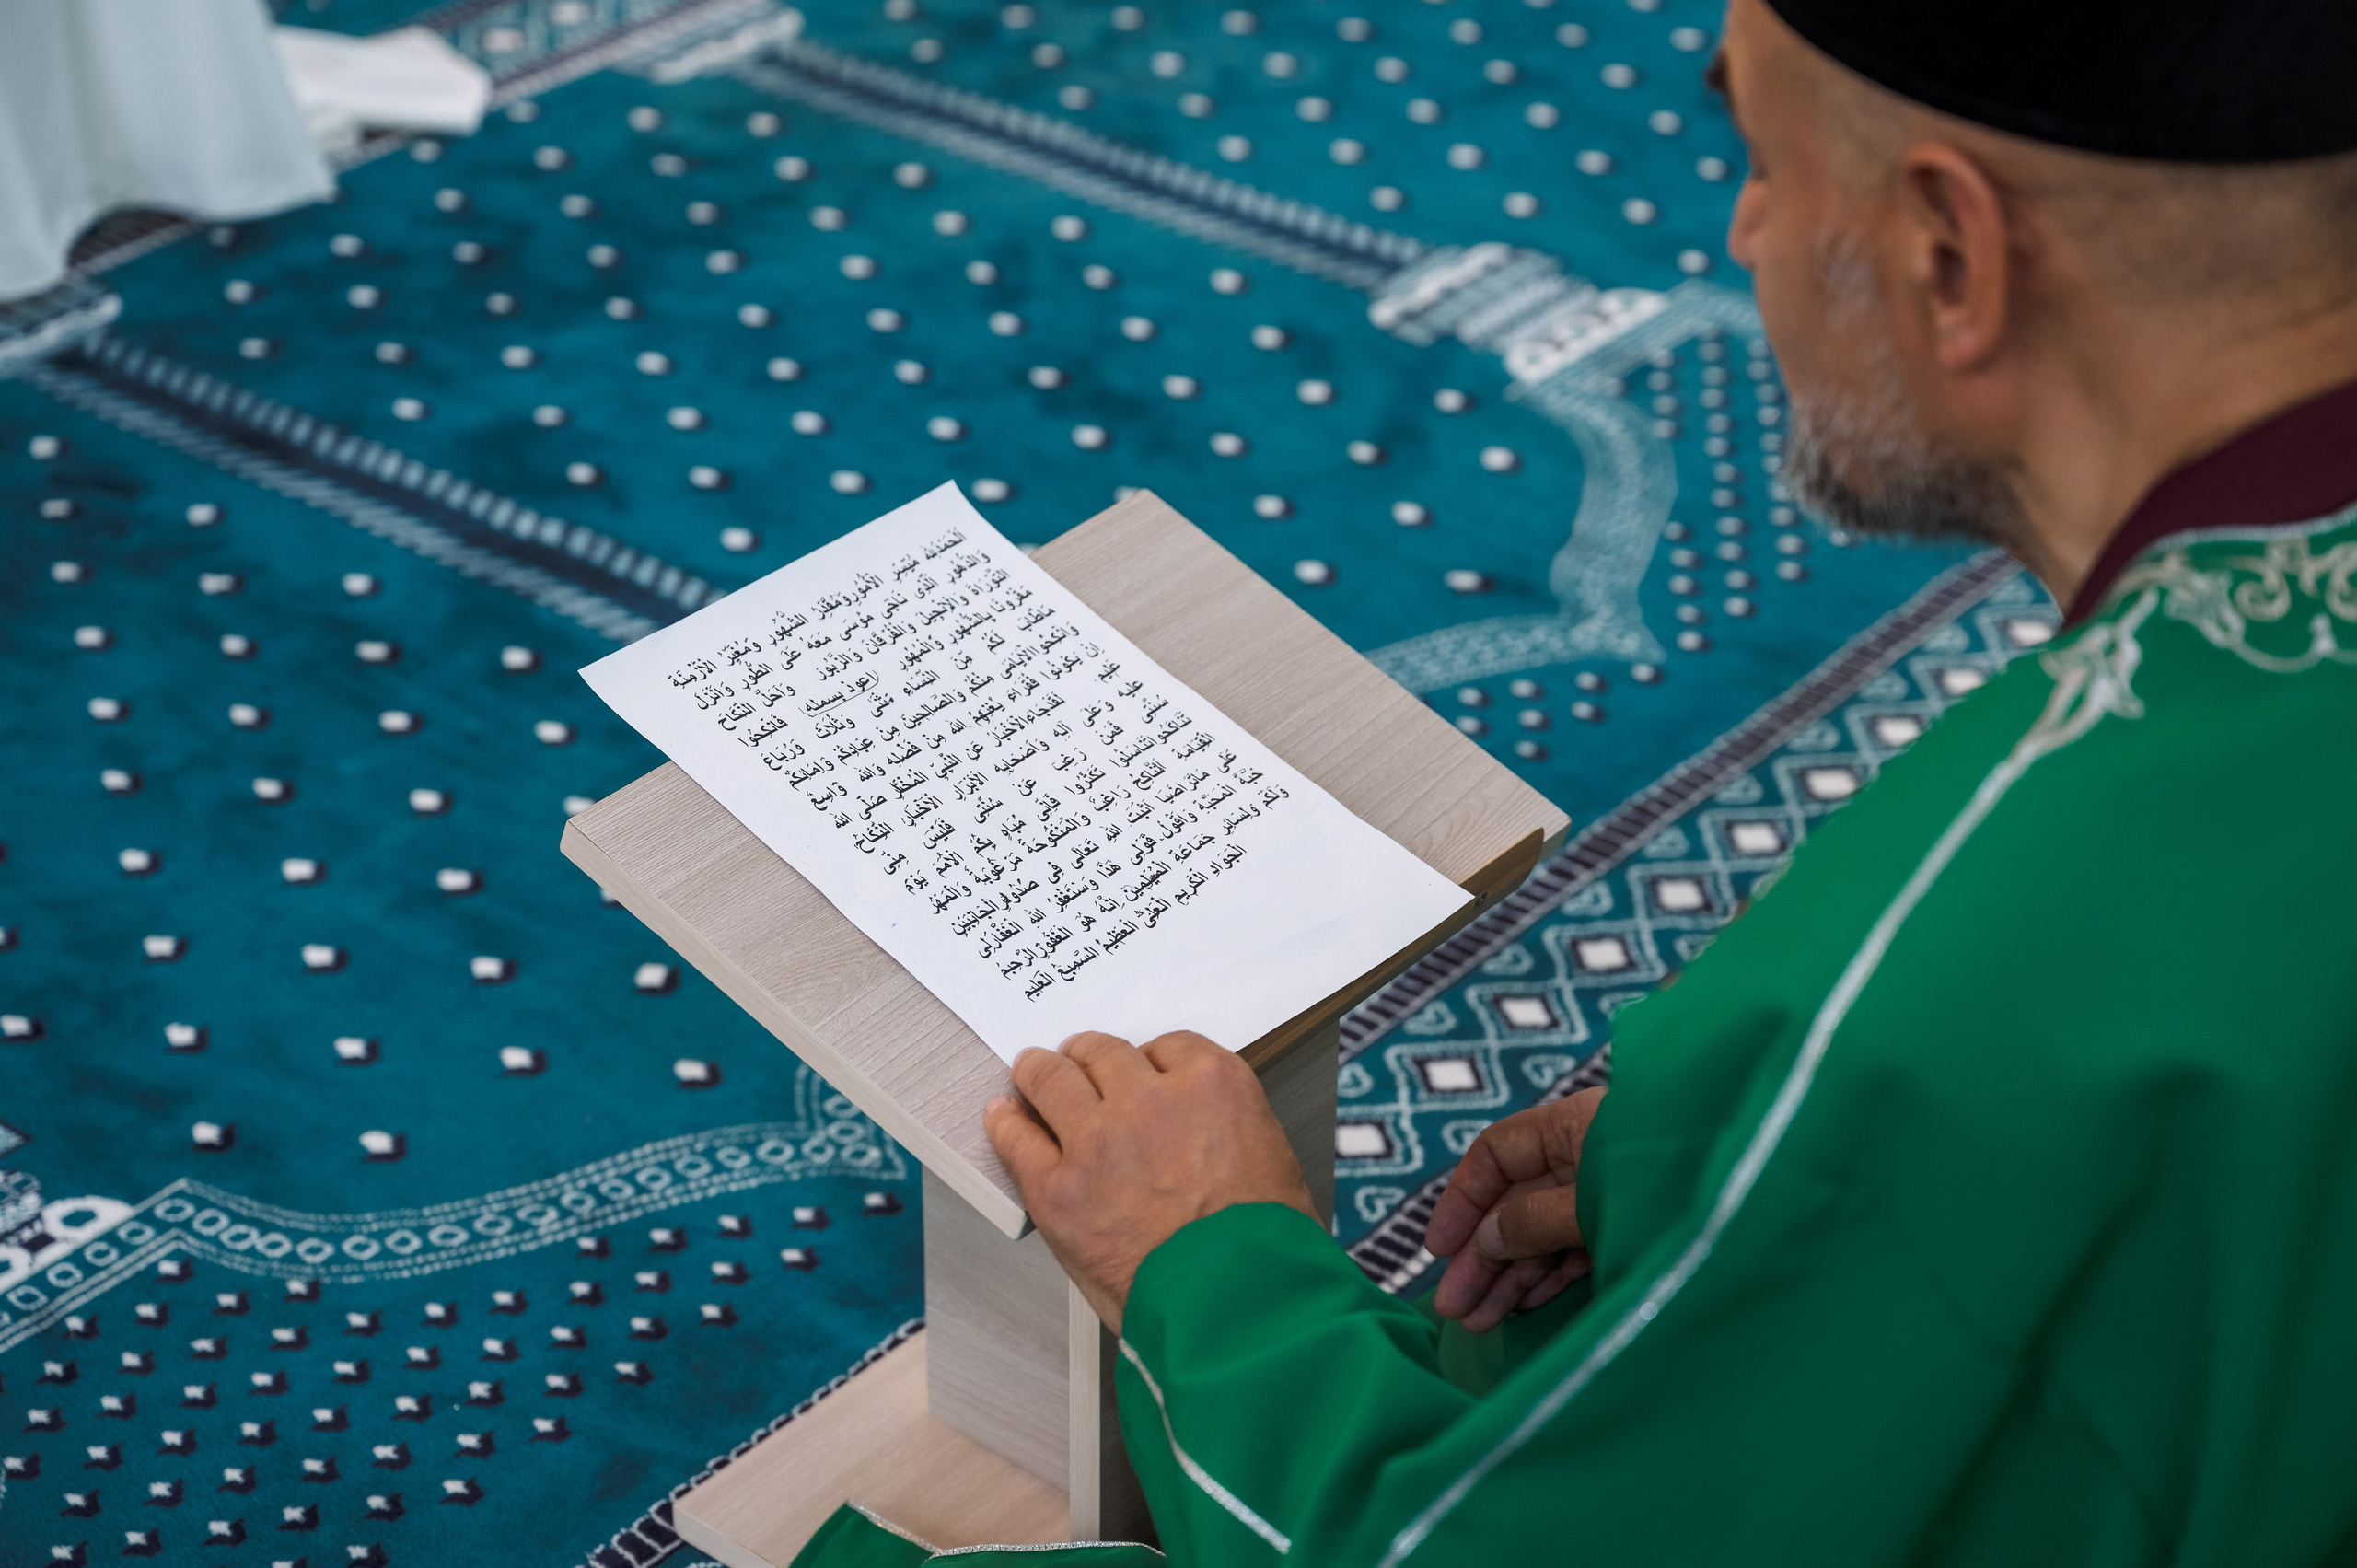 اَلْحَمْدُلِلّٰهِ مُيَسِّرِ الْأُمُورِ وَمُقَدِّرِ الشُّهُورِ وَمُغَيِّرِ الْأَزْمِنَةِ
وَالدُّهُورِ الَّذِى نَاجَى مُوسَى مَعَهُ عَلَى الطُّورِ وَأَنْزَلَ
التَّوْرَاةَ وَالْإِنْجِيلَ وَالْفُرْقَانَ وَالزَّبُورَ وَأَحَلَّ النِّكَاحَ
مَقْرُونًا بِالشُّهُورِ وَالْمُهُورِ اعوذ بسمله فَانْكِحُوا
مَاطَابَ لَكُمْ مِنَ النِّسَاءِ مَثْنَى وَثُلَاثَ وَرُبَاعَ
وَأَنْكِحُوا الْأَيَامَى مِنْكُمْ وَالصَّالِحِينَ مِنْ عِبَادِكُمْ وَإِمَائِكُمْ
إِنْ يَكُونُوا فُقَرَاءَ يُغْنِهِمُ اللهُ مِنْ فَضْلِهِ وَاللهُ وَاسِعٌ
عَلِيمٌ لَقَدْجَاءَ الْأَخْبَارُ عَنِ النَّبِىِّ الْمُخْتَارِ صَلَّى اللهُ
عَلَيْهِ وَعَلَى آلِهِ وَأَصْحَابِهِ الْأَبْرَارِ الْأَخْيَارِ النِّكَاحُ
سُنَّتِى فَمَنْ رَغِبَ عَنْ سُنَّتِى فَلَيْسَ مِنِّى
تَنَاكَحُوا تَنَاسَلُوا تَكْثُرُوا يَوْمَ
الْقِيَامَةِ النَّاكِحُ رَاغِبٌ وَالْمَنْكُوحَةُ مَرْغُوبَةٌ وَالْمَهْرُ
عَلَى مَاتَرَاضَيَا اللهُ تَعَالَى فِى صُدُورِ
الْمَحَبَّةَ وَأَقُولُ قَوْلِى هَذَا وَسْتَغْفِرُ اللهَ الْغَفَّارَلِى
وَلَكُمْ وَلِسَائِرِ جَمَاعَةِ الْمُسْلِمِينَ إِنَّهُ هُوَ الْغَفُورُ الرَّحِيمُ
الْجَوَادُ الْكَرِيمُ الْغَنِىُّ الْعَظِيمُ السَّمِيعُ
الْعَلِيمُ